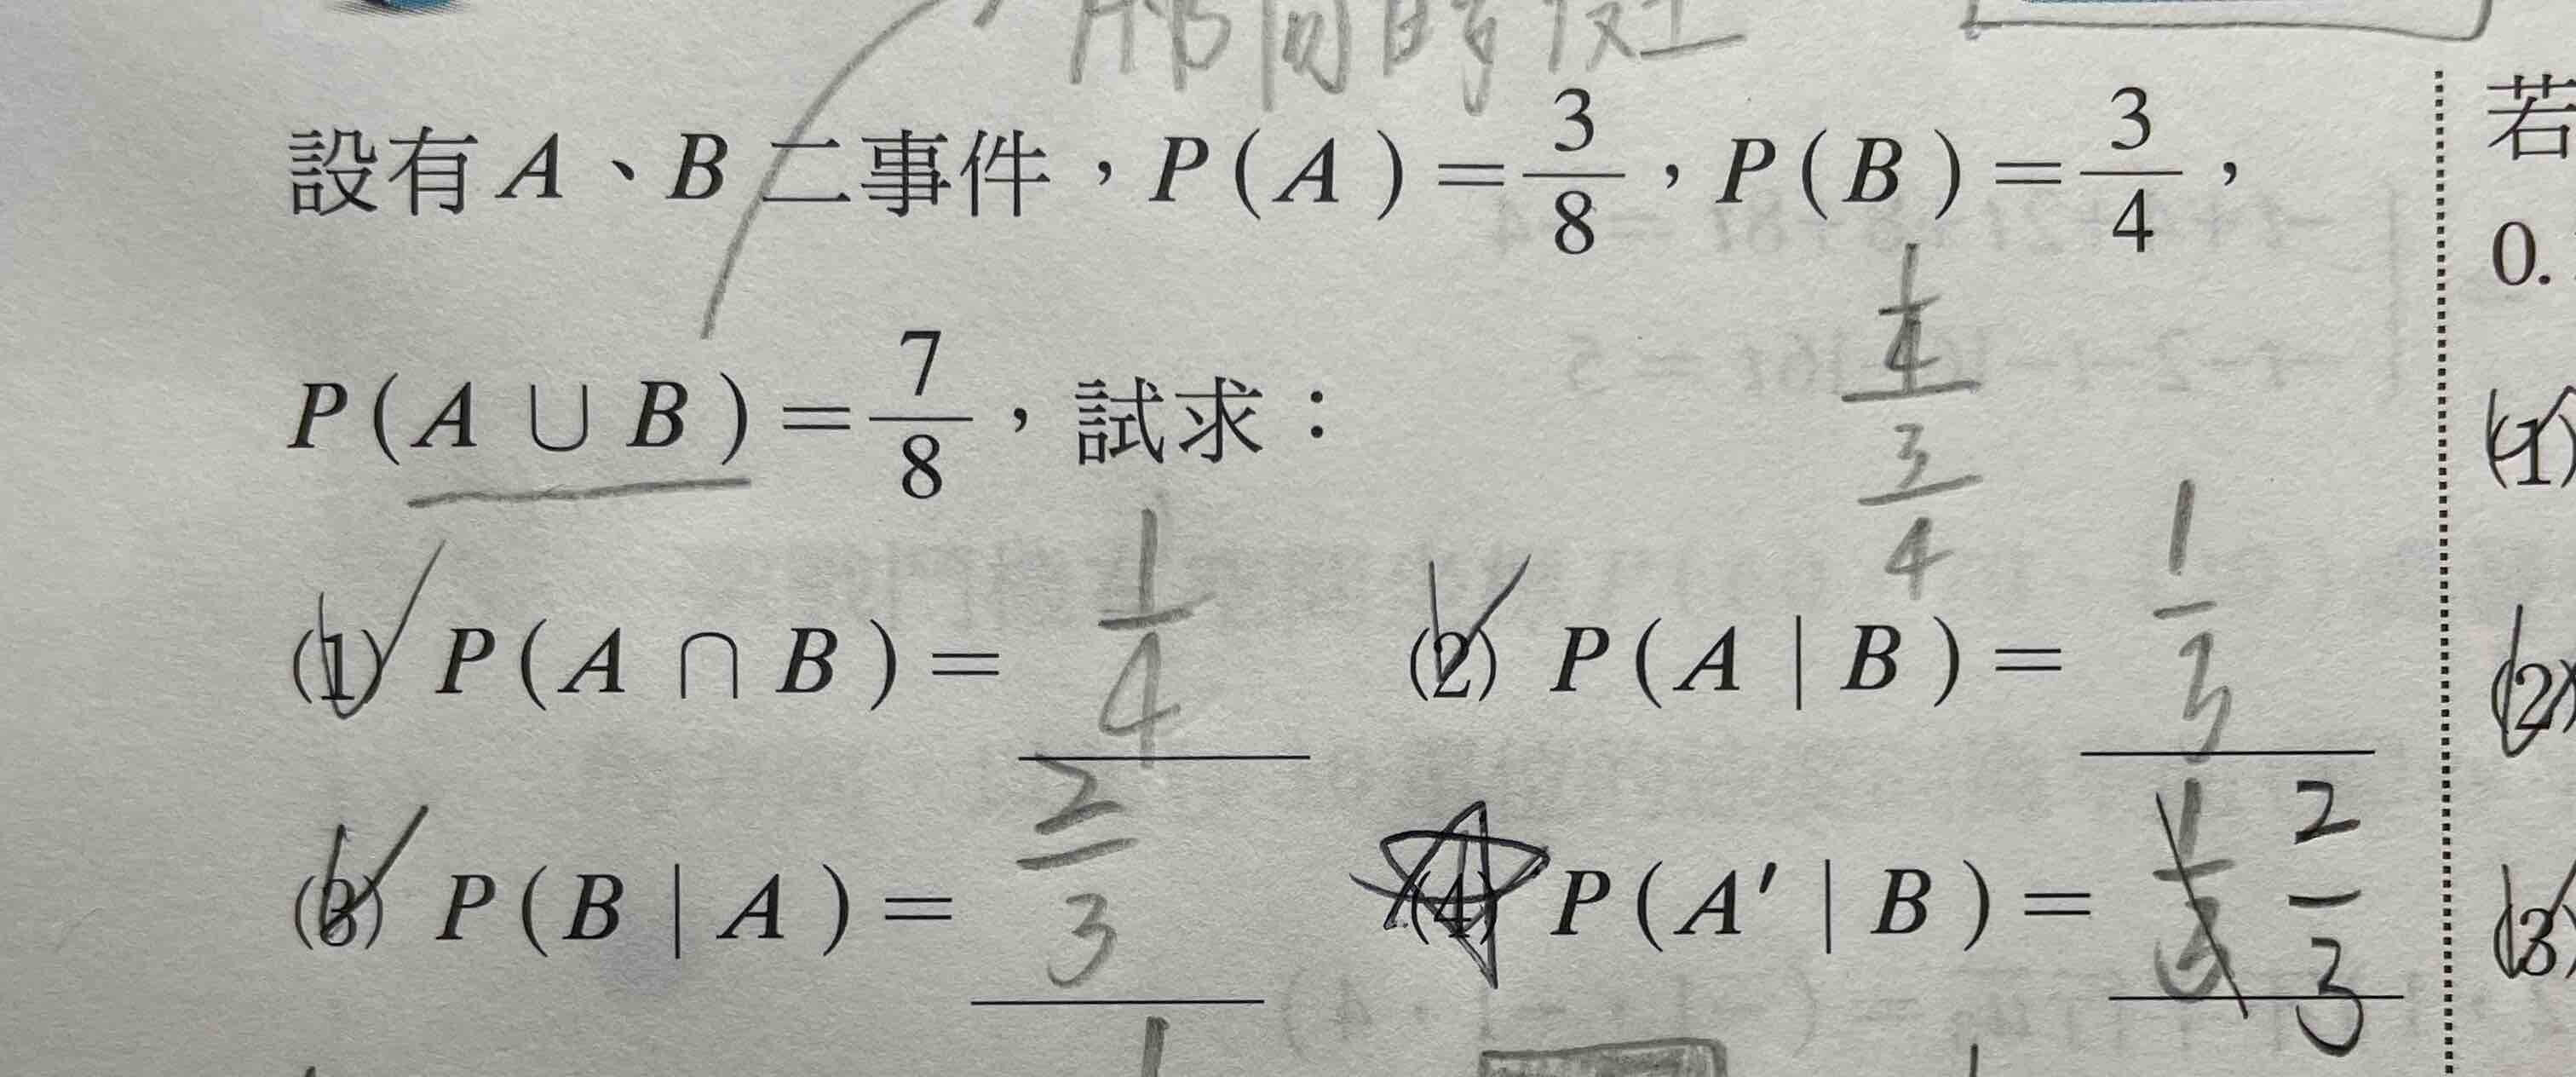 AB同時發生
設有 A、B 二事件，P(A)=3/8，P(B)=3/4，
P(A∪B)=7/8，試求：
1/4
3/4
(1) P(A∩B)= 1/4 (2) P(A|B)= 1/3
(3) P(B|A)= 2/3 (4) P(A′|B)= 2/3
若
0.
(1)
(2)
(3)